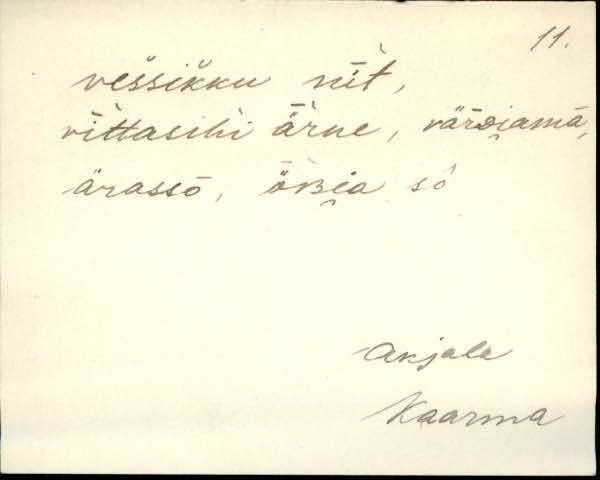 11.
vešsikku nīt̀,
vīttasihi ǟrne, värs̯i̯amā,
ärassō, ȫʙi̯a sô
Anjala
Kaarma